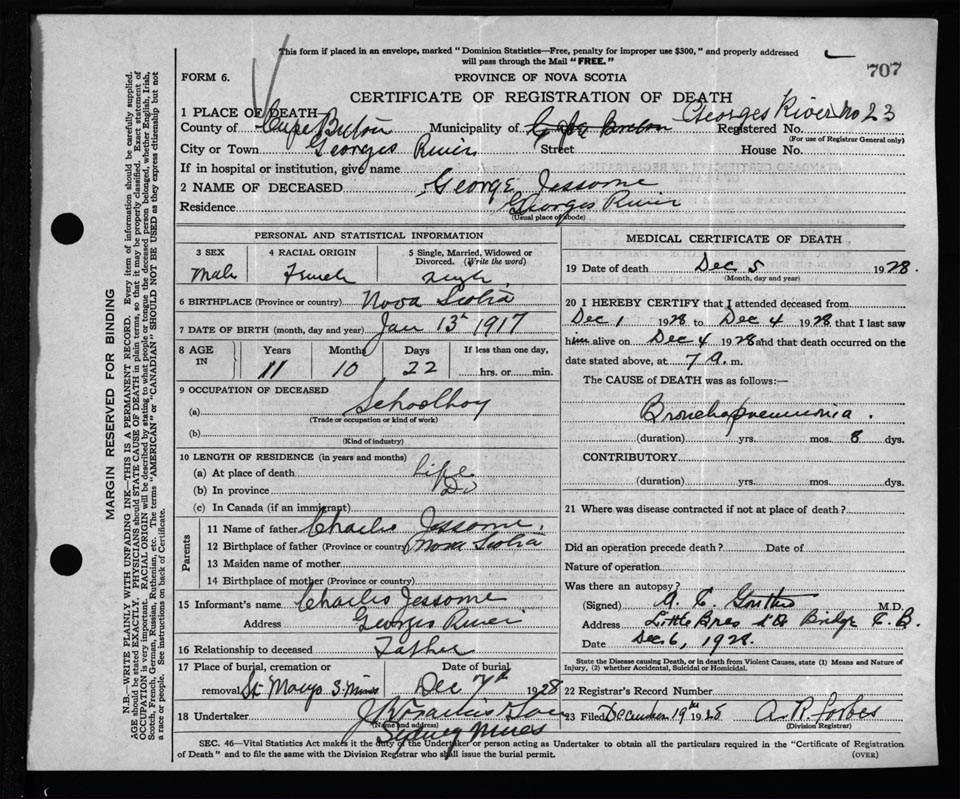 This form if placed in an envelope, marked "Dominion Statistics—Free, penalty for improper use $300," and properly addressed
will pass through the Mail "FREE."
707
FORM 6. PROVINCE OF NOVA SCOTIA
CERTIFICATE OF REGISTRATION OF DEATH
1 PLACE OF DEATH— Georges River No 23
County of Cape Breton Municipality of Cape Breton Registered No.
(For use of Registrar General only)
City or Town Georges River Street House No.
If in hospital or institution, give name
2 NAME OF DECEASED George Jessome
Residence Georges River
(Usual place of abode)
PERSONAL AND STATISTICAL INFORMATION
3 SEX 4 RACIAL ORIGIN 5 Single, Married, Widowed or
Divorced. (Write the word)
Male French Single
6 BIRTHPLACE (Province or country) Nova Scotia
7 DATE OF BIRTH (month, day and year) Jan 13th 1917
8 AGE IN Years Months Days If less than one day,
11 10 22 hrs. or min.
9 OCCUPATION OF DECEASED
(a) Schoolboy
(Trade or occupation or kind of work)
(b)
(Kind of industry)
10 LENGTH OF RESIDENCE (in years and months)
(a) At place of death life
(b) In province Do
(c) In Canada (if an immigrant)
Parents
11 Name of father Charlie Jessome.
12 Birthplace of father (Province or country) Nova Scotia
13 Maiden name of mother
14 Birthplace of mother (Province or country)
15 Informant's name Charlie Jessome
Address Georges River
16 Relationship to deceased Father
17 Place of burial, cremation or Date of burial
removal St. Marys S. Mines Dec 7th 1928
18 Undertaker
(Name and address)
Sydney Mines
MEDICAL CERTIFICATE OF DEATH
19 Date of death Dec 5 1928.
(Month, day and year)
20 I HEREBY CERTIFY that I attended deceased from
Dec 1 1928 to Dec 4 1928 that I last saw
him alive on Dec 4 1928 and that death occurred on the
date stated above, at 7 a. m.
The CAUSE of DEATH was as follows:—
Bronchopneumonia.
(duration) yrs. mos. 8 dys.
CONTRIBUTORY
(duration) yrs. mos. dys.
21 Where was disease contracted if not at place of death?
Did an operation precede death? Date of
Nature of operation
Was there an autopsy?
(Signed) M.D.
Address Little Bras d'Or Bridge C.B.
Date Dec 6, 1928.
State the Disease causing Death, or in death from Violent Causes, state (1) Means and Nature of
Injury, (2) whether Accidental, Suicidal or Homicidal.
22 Registrar's Record Number
23 Filed December 19th 1928 A. R. Forbes
(Division Registrar)
SEC. 46—Vital Statistics Act makes it the duty of the Undertaker or person acting as Undertaker to obtain all the particulars required in the "Certificate of Registration
of Death" and to file the same with the Division Registrar who shall issue the burial permit. (OVER)
MARGIN RESERVED FOR BINDING
N.B.—WRITE PLAINLY WITH UNFADING INK—THIS IS A PERMANENT RECORD. Every item of information should be carefully supplied.
AGE should be stated EXACTLY. PHYSICIANS should STATE CAUSE OF DEATH in plain terms, so that it may be properly classified. Exact statement of
OCCUPATION is very important. RACIAL ORIGIN will be described by stating to what people or tongue the deceased person belonged, whether English, Irish,
Scotch, French, German, Russian, Ruthenian, etc. The terms "AMERICAN" or "CANADIAN" SHOULD NOT BE USED as they express citizenship but not
a race or people. See instructions on back of Certificate.